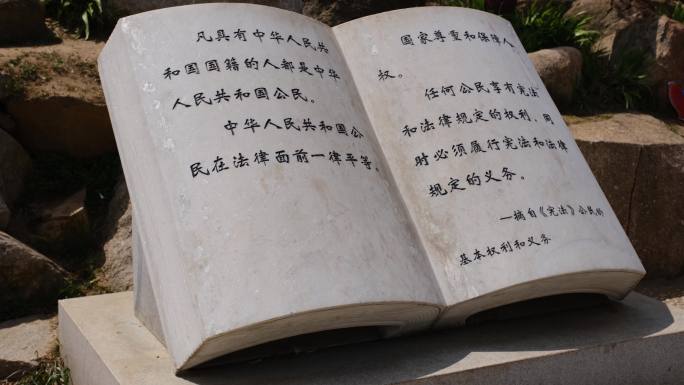 凡具有中华人民共
和国国籍的人都是中华
人民共和国公民。
中华人民共和国公
民在法律面前一律平等。
国家尊重和保障人
权。
任何公民享有宪法
和法律规定的权利,同
时必须履行宪法和法律
规定的义务。
—摘自《宪法》公民的
基本权利和义务